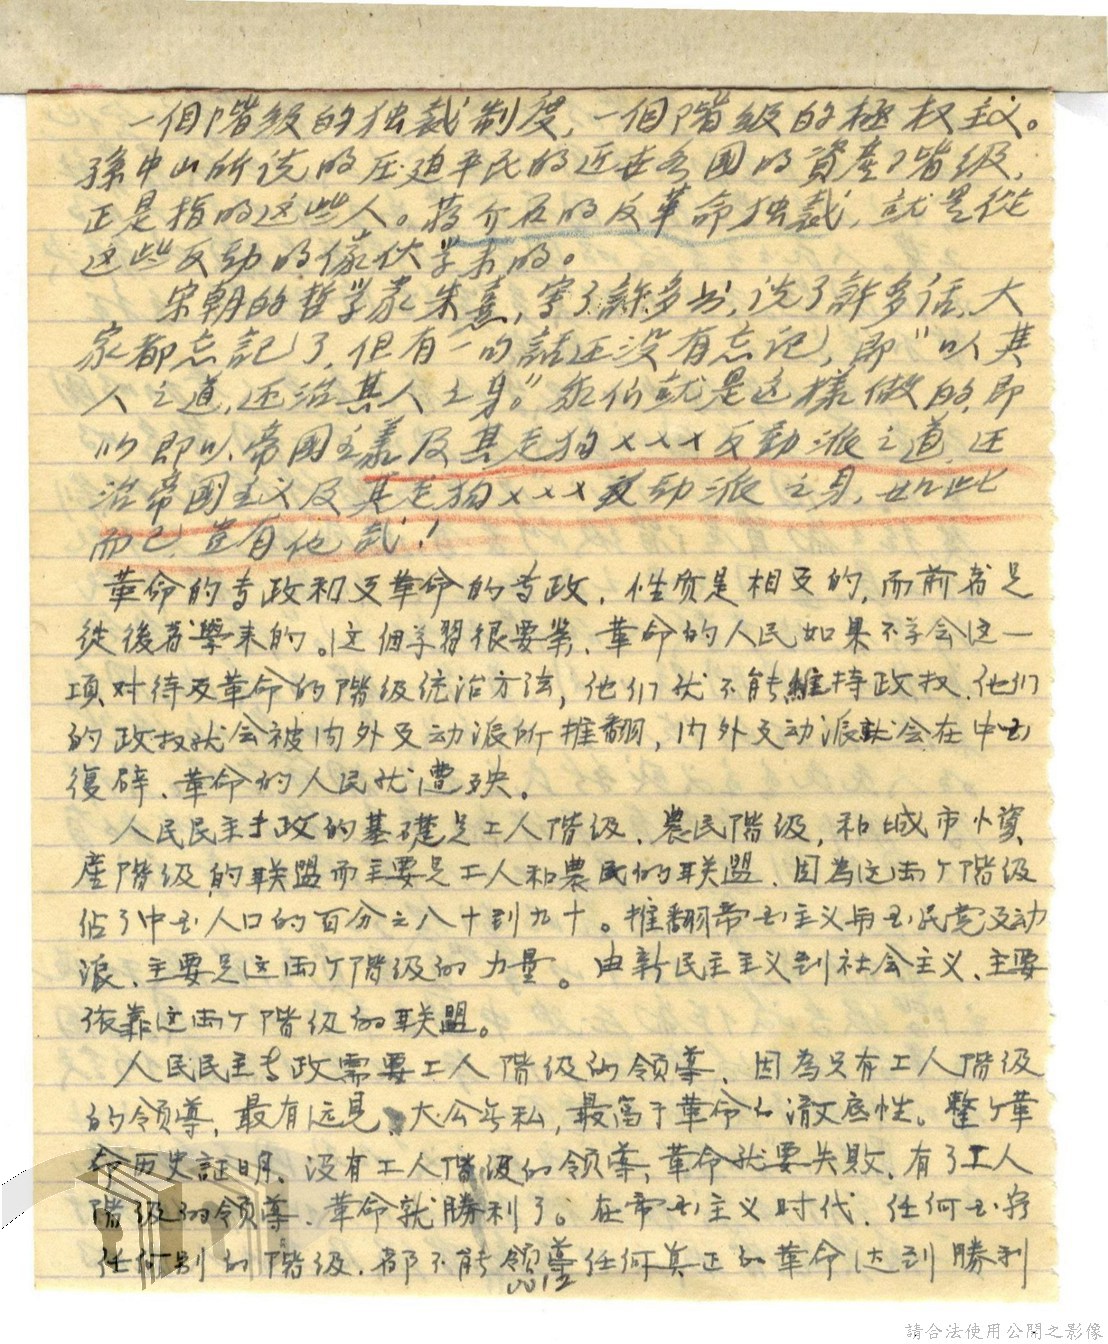 一個階級的独裁制度，一個階級的極权主义。
孫中山所说的压迫平民的近世各国的資產階级，
正是指的这些人。蒋介石的反革命独裁，就是從
这些反动的傢伙学来的。
宋朝的哲学家朱熹，写了許多书，说了許多话，大
家都忘記了，但有一句話还没有忘记，即"以其
人之道，还治其人之身。"我们就是这樣做的，即
以即以帝國主義及其走狗×××反動派之道，还
治帝國主义及其走狗×××反动派之身，如此
而已，豈有他哉！
革命的专政和反革命的专政，性质是相反的，而前者是
從後者學来的。这個学習很要紧，革命的人民如果不学会这一
項对待反革命的階级统治方法，他们就不能維持政权，他们
的政权就会被内外反动派所推翻，内外反动派就会在中国
復辟，革命的人民就遭殃。
人民民主专政的基礎是工人階级，農民階级，和城市小資
產階级的联盟而主要是工人和農民的联盟，因為这两个階级
佔了中国人口的百分之八十到九十。推翻帝国主义与国民党反动
派，主要是这两个階级的力量。由新民主主义到社会主义，主要
依靠这两个階级的联盟。
人民民主专政需要工人階级的領導，因為只有工人階级
的領導，最有远見，大公无私，最富于革命的澈底性。整个革
命历史証明，没有工人階级的領導，革命就要失敗，有了工人
階级的領導，革命就勝利了。在帝国主义时代，任何国家
任何别的階级，都不能領導任何真正的革命达到勝利
0012
請合法使用公開之影像